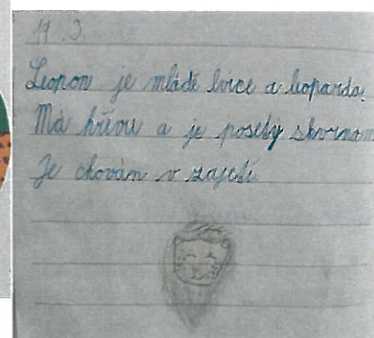 17. 3.
Leopon je mládě lvice a leoparda.
Má hřívu a je posetý skvrnam
Je chován v zajetí.